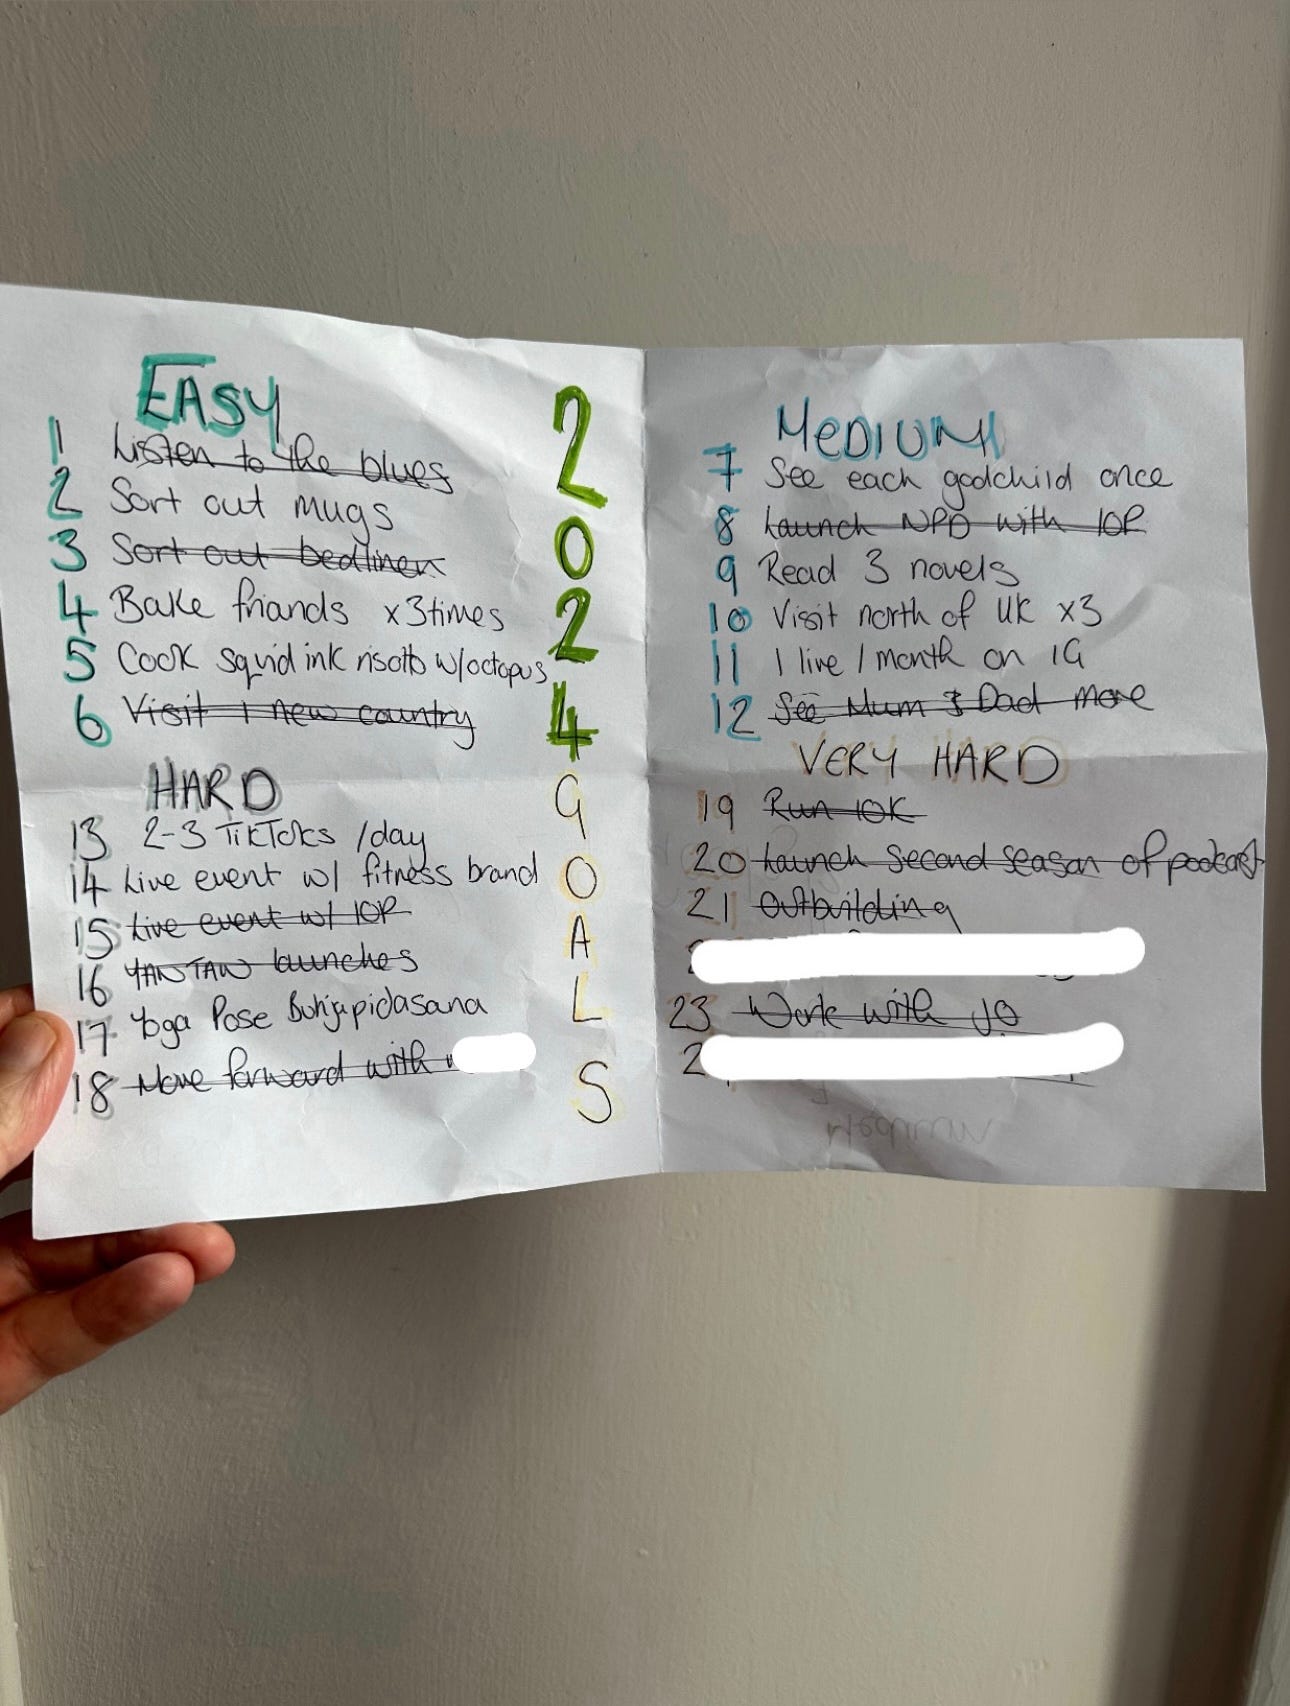 EASY
1 Listen to the blues
2 Sort out mugs
3 Sort out bedlinen
4 Bake friands x3times
5 Cook squid ink risotto w/octopus
6 Visit 1 new country
HARD
13 2-3 TIKTOKS /day
14 Live event w/ fitness brand
15 Live event w/ IOP
16 YAN TAW launches
17 Yoga Pose
18 Move forward with
2024
GOALS
MEDIUM
7 See each godchild once
8 Launch NPD with IOP
9 Read 3 novels
10 Visit north of UK x3
11 1 live / month on IG
12 See Mum & Dad more
VERY HARD
19 Run 10K
20 Launch second season of podcast
21 Outbuilding
23 Work with JO
2